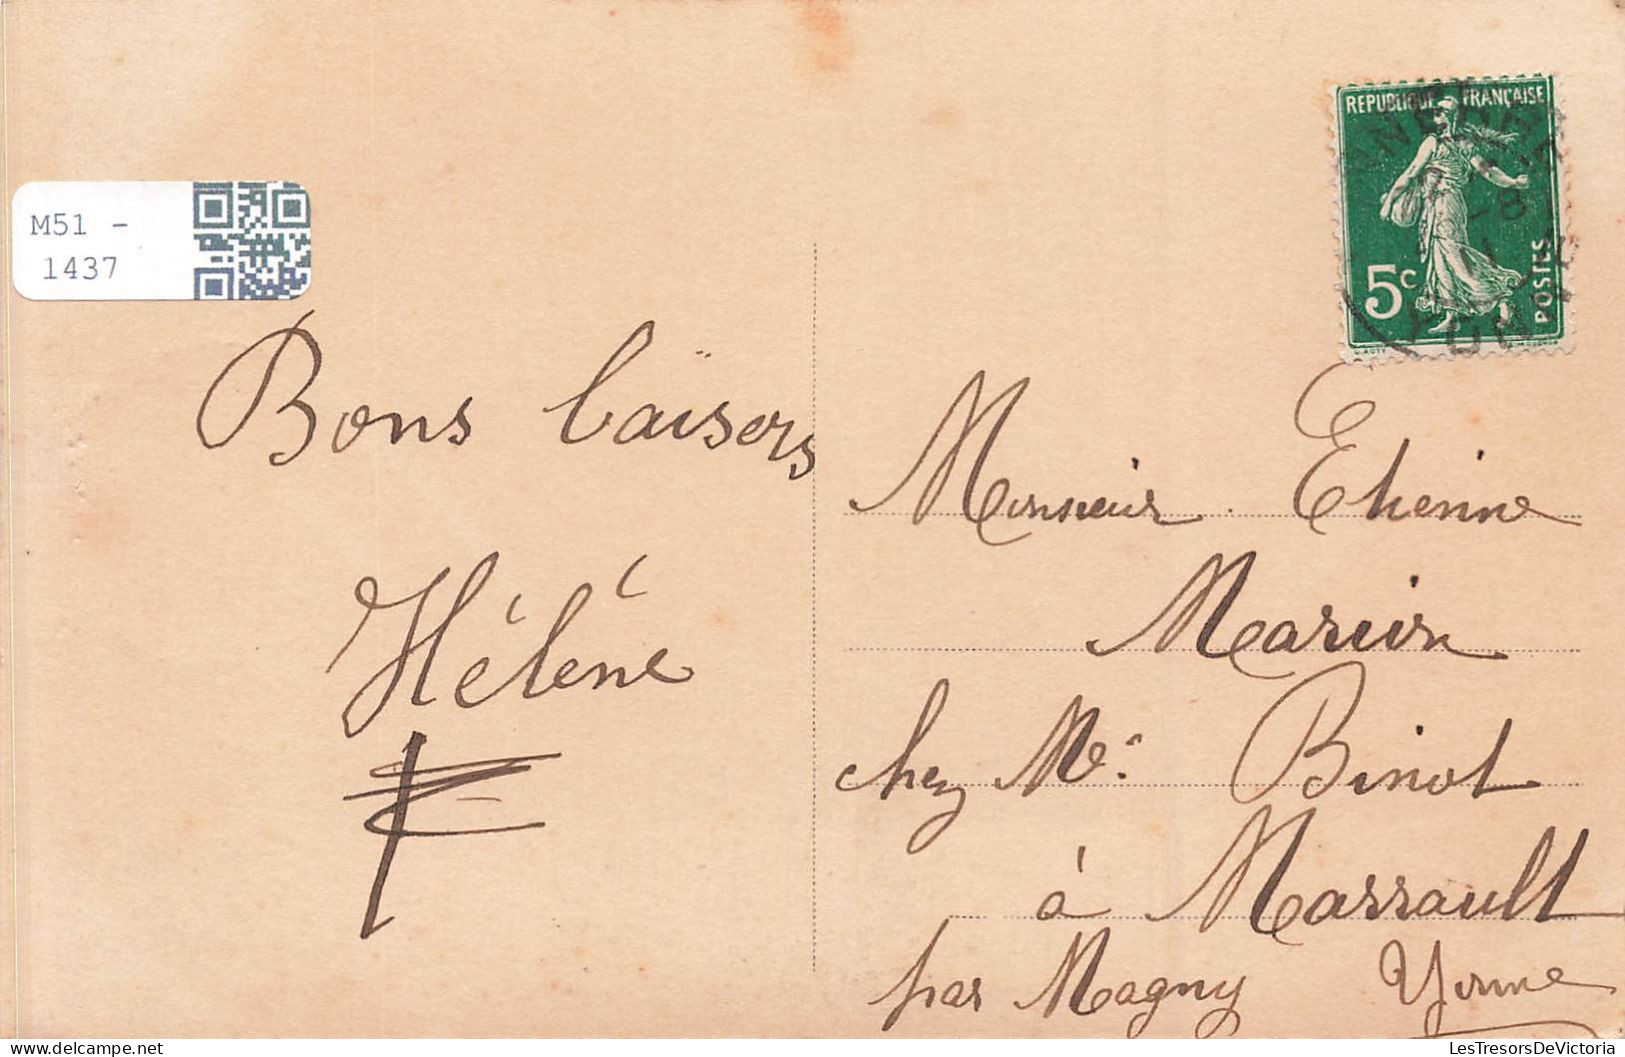 M51 -
1437
REPUBLIQUE FRANÇAISE
5c
POSTES
Bons baisers
Hélène
Monsieur Etienne
Marion
chez Mr. Binot
à Marrault
par Magny Yonne
LesTresorsDeVictoria